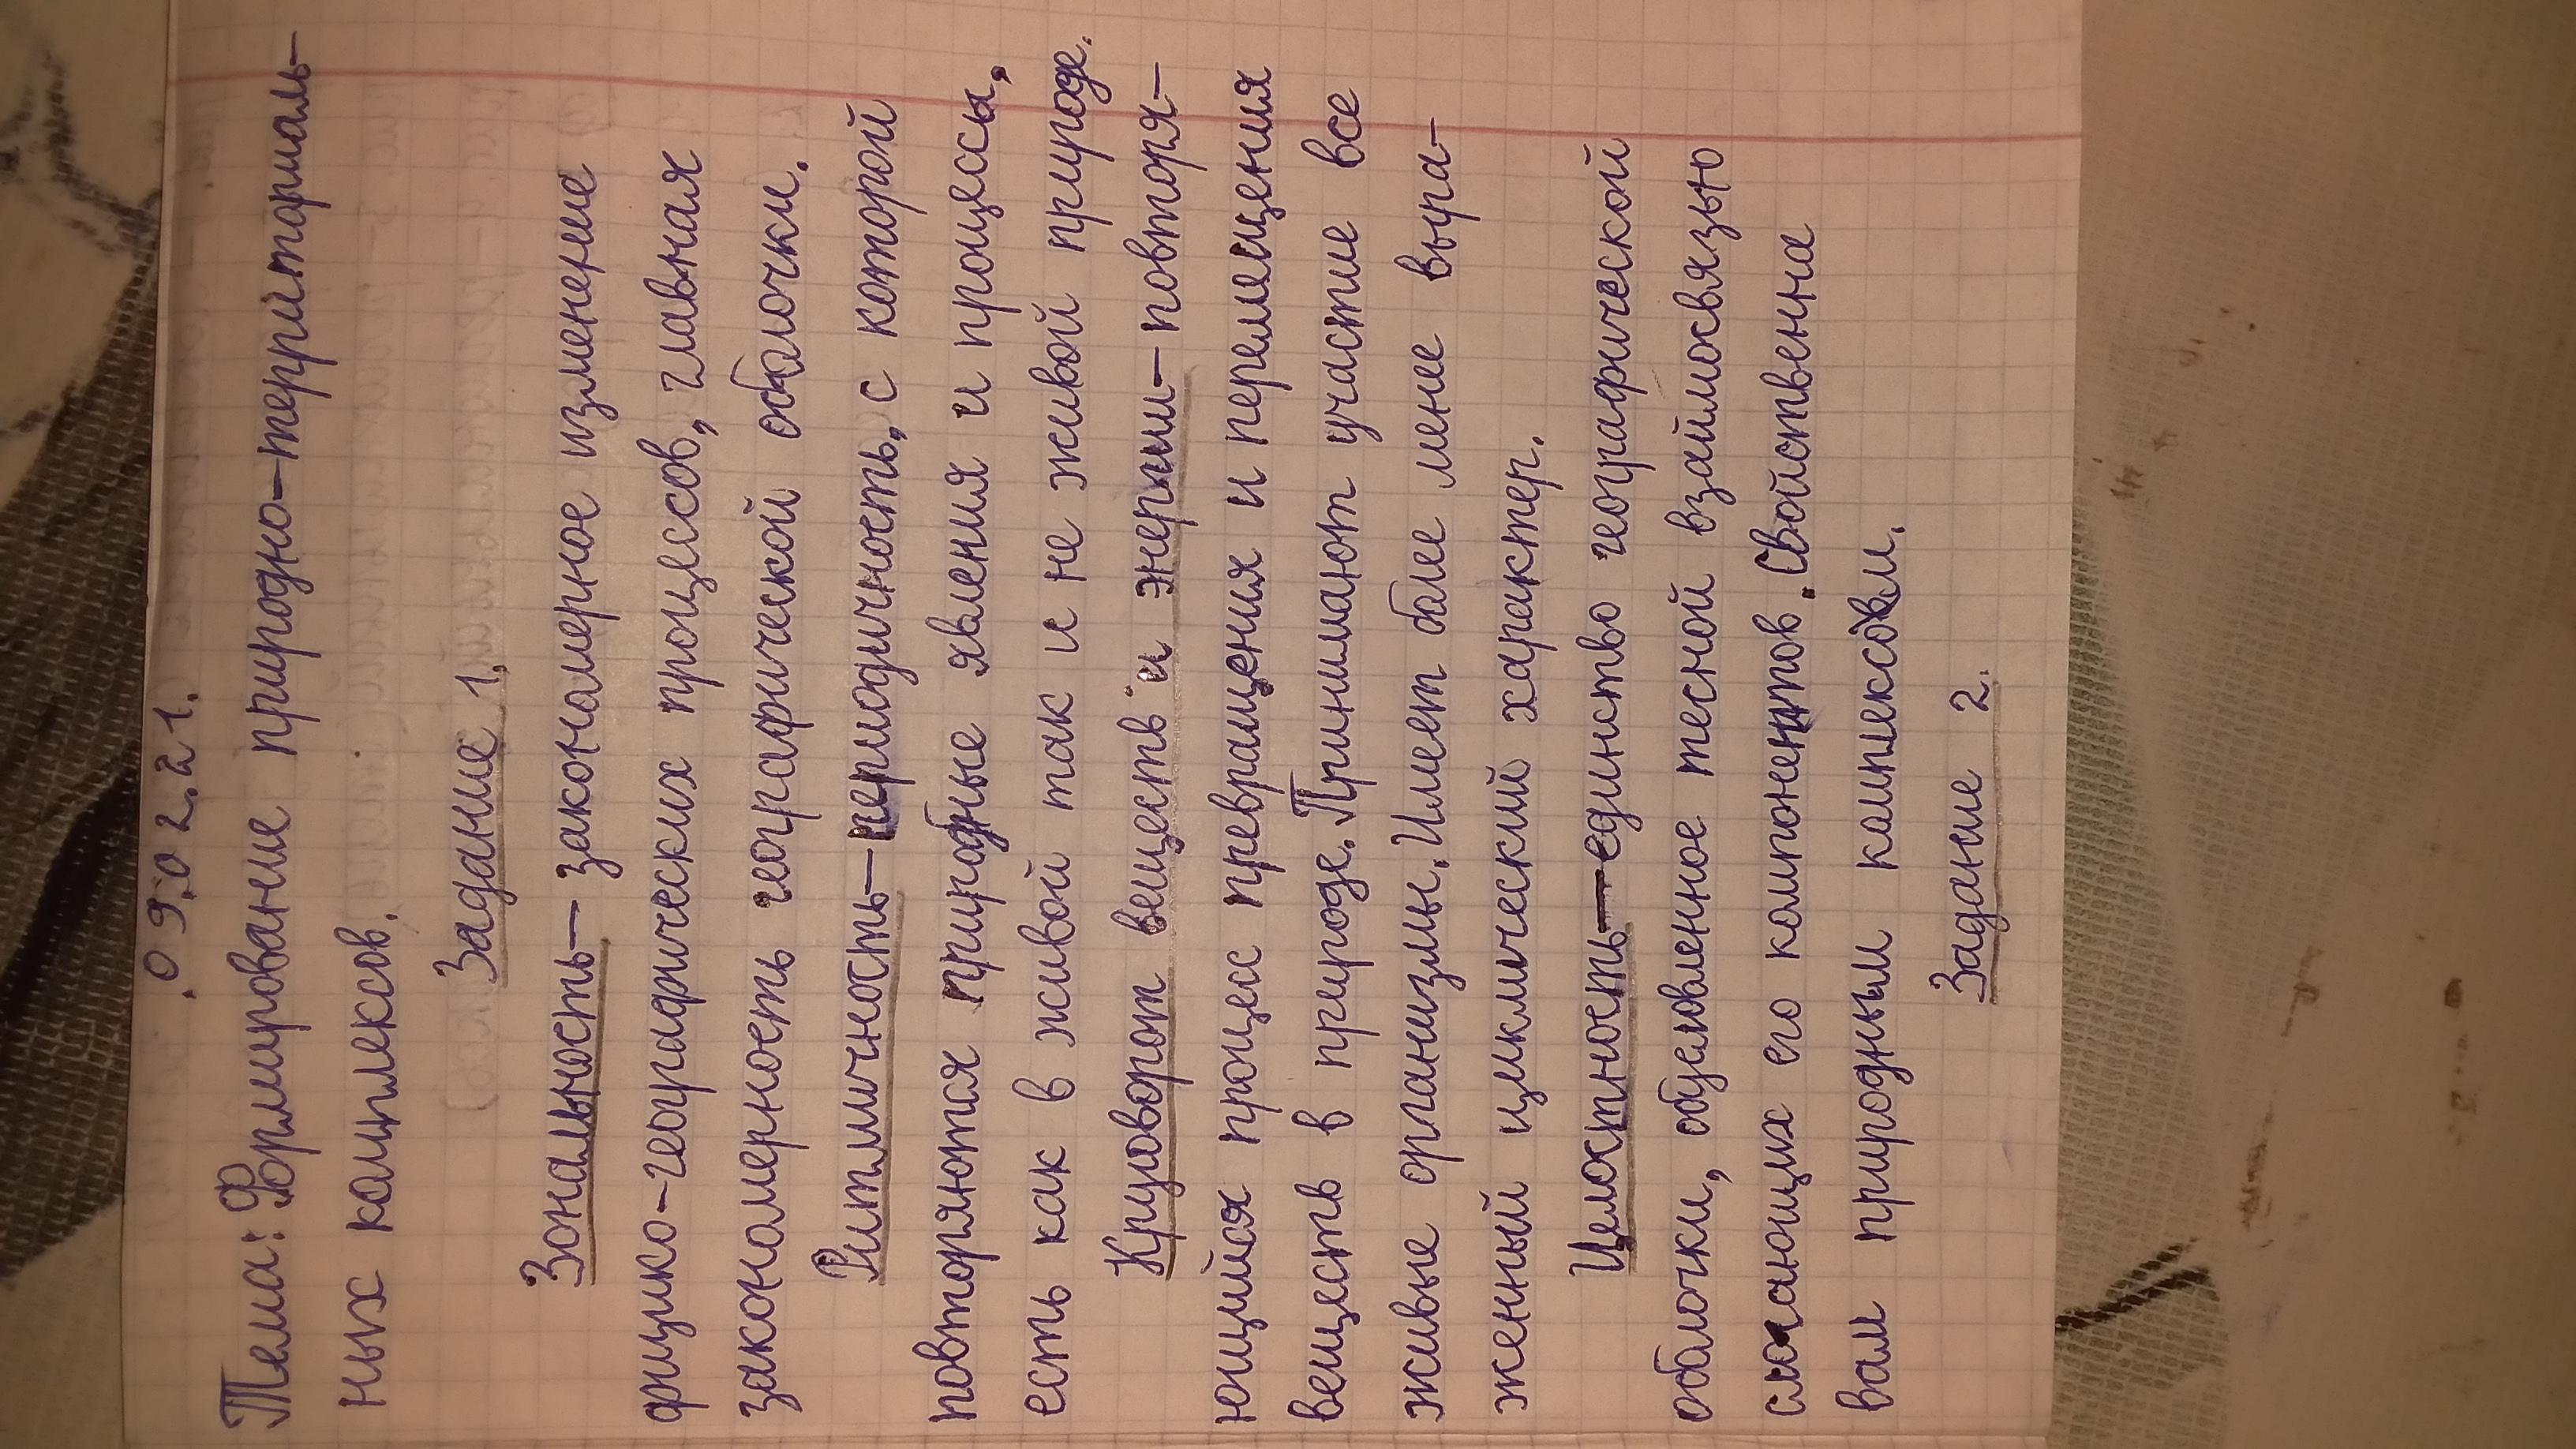 .09.02.21.
Тема: Формирование природно-территориаль-
ных комплексов.
Задание 1.
Зональность— закономерное изменение
физико-географических процессов, главная
закономерность географической оболочки.
Ритмичность—периодичность, с которой
повторяются природные явления и процессы,
есть как в живой так и не живой природе.
Круговорот веществ и энергии—повторя-
ющийся процесс превращения и перемещения
веществ в природе. Принимают участие все
живые организмы. Имеет более мение выра-
женный циклический характер.
Целостность—единство географической
оболочки, обусловленное тесной взаймосвязью
слогающих его компонентов. Свойственна
вам природным комплексам.
Задание 2.